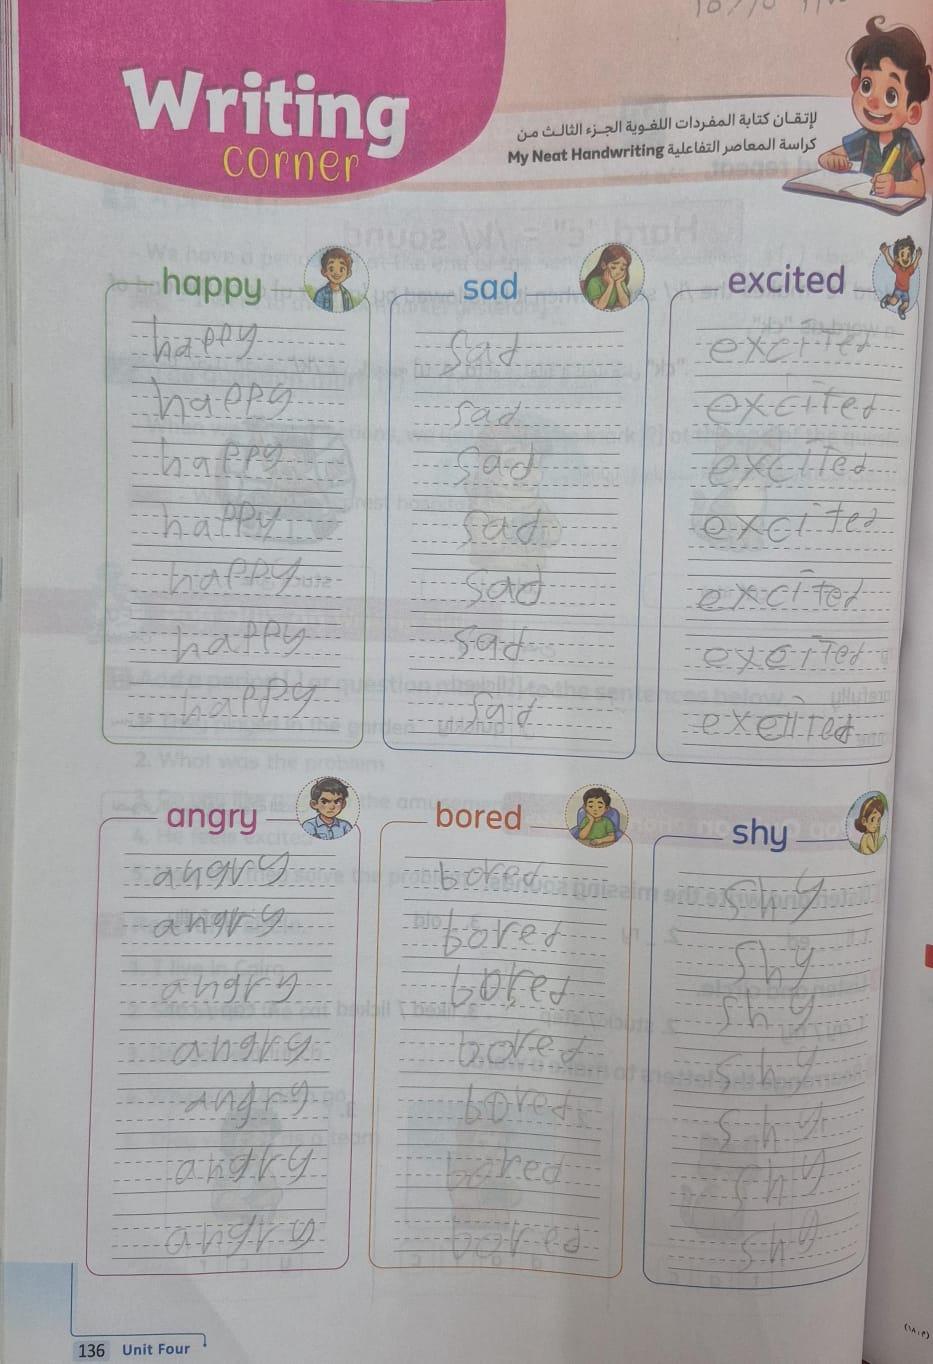 Writing
corner
لإتقان كتابة المفردات اللغوية الجزء الثالث من
كراسة المعاصر التفاعلية My Neat Handwriting
happy
happy
happy
happy
happy
happy
happy
happy
sad
sad
sad
sad
sad
sad
sad
sad
excited
excited
excited
excited
excited
excited
excited
angry
angry
angry
angry
angry
angry
angry
angry
bored
bored
bored
bored
bored
bored
bored
bored
shy
shy
shy
shy
shy
shy
shy
shy
136 Unit Four